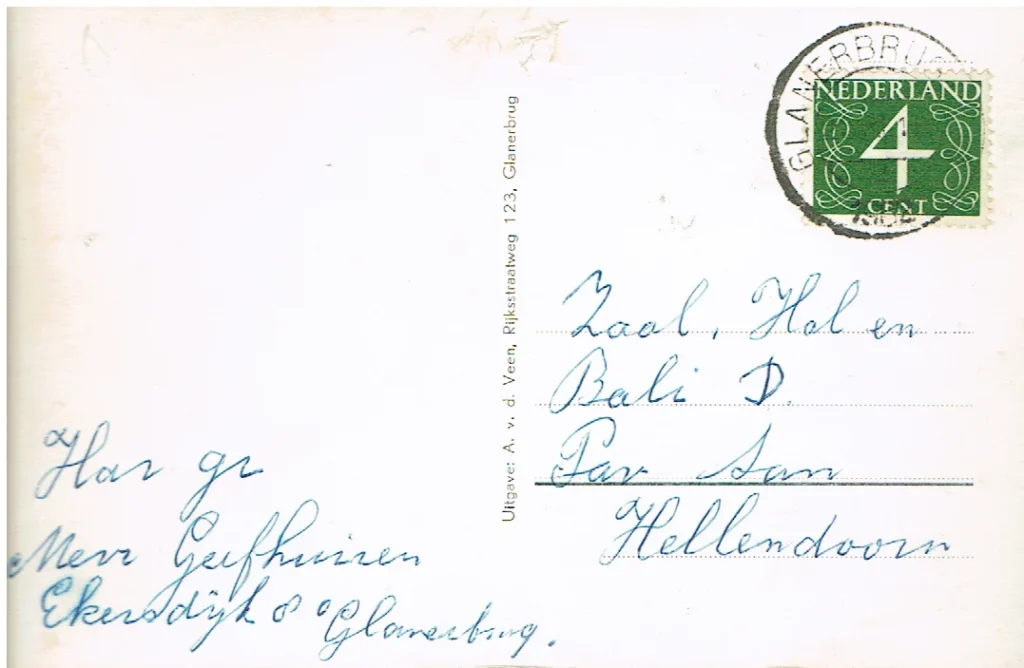 GLANERBRUG
NEDERLAND
4
CENT
Uitgave: A. v. d. Veen, Rijksstraatweg 123, Glanerbrug
Zaal, Hal en
Bali D.
Pav San
Hellendoorn
Har gr
Mevr
Ekersdijk 8 Glanerbrug.